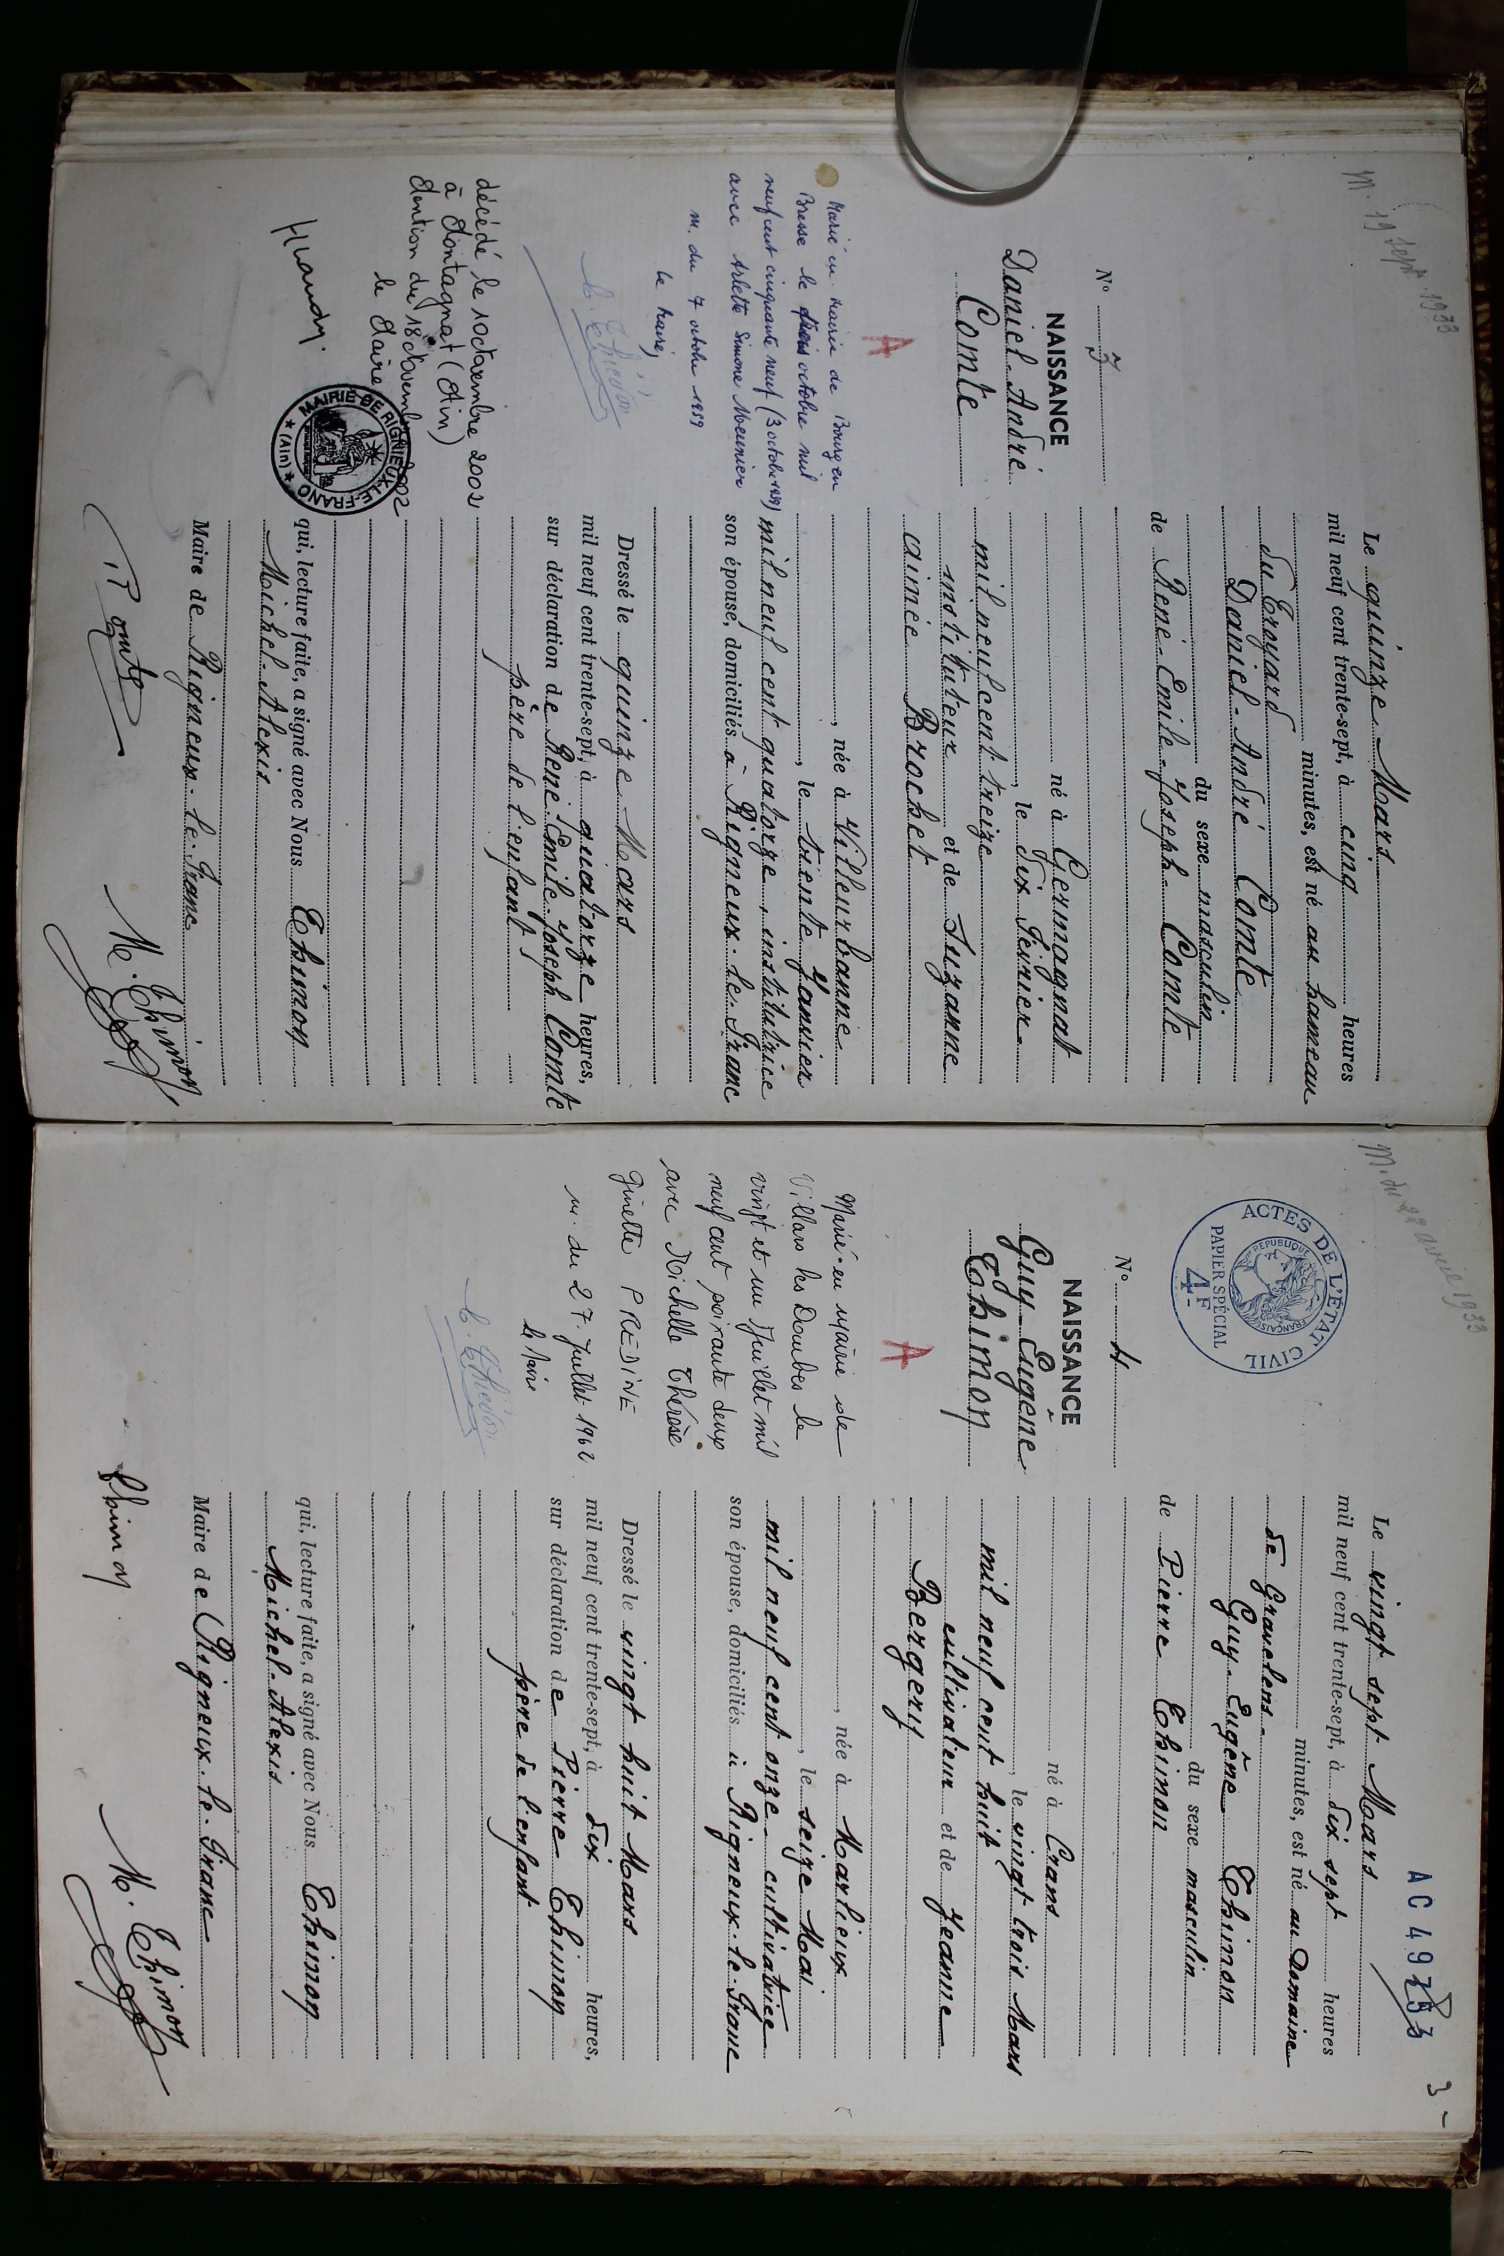 M. 19 Sept. 1933
N° 3
NAISSANCE
Daniel-André
Comte
A
Marié en mairie de Bourg en
Bresse le trois octobre mil
neuf cent cinquante neuf (3 octobre 1959)
avec Arlette Simone Meunier
m. du 7 octobre 1959
Le Maire,
décédé le 10 novembre 2002
à Montagnat (Ain)
Mention du 18 novembre 2002
le Maire
MAIRIE DE RIGNIEUX-LE-FRANC
★ (Ain) ★
Le quinze Mars
mil neuf cent trente-sept, à cinq heures
minutes, est né au hameau
du Groyard
Daniel-André Comte
du sexe masculin
de René-Emile-Joseph Comte
né à Germagnat
, le dix Février
mil neuf cent treize
instituteur et de Suzanne
aimée Brochet
, née à Villeurbanne
, le trente Janvier
mil neuf cent quatorze, institutrice
son épouse, domiciliés à Rigneux-le-Franc
Dressé le quinze Mars
mil neuf cent trente-sept, à quatorze heures,
sur déclaration de René-Emile-Joseph Comte
père de l'enfant
qui, lecture faite, a signé avec Nous Thimon
Michel-Alexis
Maire de Rigneux-le-Franc
R Comte
M. Thimon
M. du 22 avril 1933
ACTES DE L'ÉTAT CIVIL
RÉPUBLIQUE FRANÇAISE
PAPIER SPÉCIAL
4F
AC 49
3
N° 4
NAISSANCE
Guy-Eugène
Thimon
A
Marié en mairie de
Villars les Dombes le
vingt et un Juillet mil
neuf cent soixante deux
avec Michelle Thérèse
Ginette PREDINE
m. du 27 Juillet 1962
le Maire
Le vingt sept Mars
mil neuf cent trente-sept, à dix sept heures
minutes, est né au Domaine
de Gravelens
Guy-Eugène Thimon
du sexe masculin
de Pierre Thimon
né à Crans
, le vingt trois Mars
mil neuf cent huit
cultivateur et de Jeanne
Bergery
, née à Marlieux
, le seize Mai
mil neuf cent onze - cultivatrice
son épouse, domiciliés à Rigneux-le-Franc
Dressé le vingt huit Mars
mil neuf cent trente-sept, à dix heures,
sur déclaration de Pierre Thimon
père de l'enfant
qui, lecture faite, a signé avec Nous Thimon
Michel-Alexis
Maire de Rigneux-le-Franc
Thimon
M. Thimon